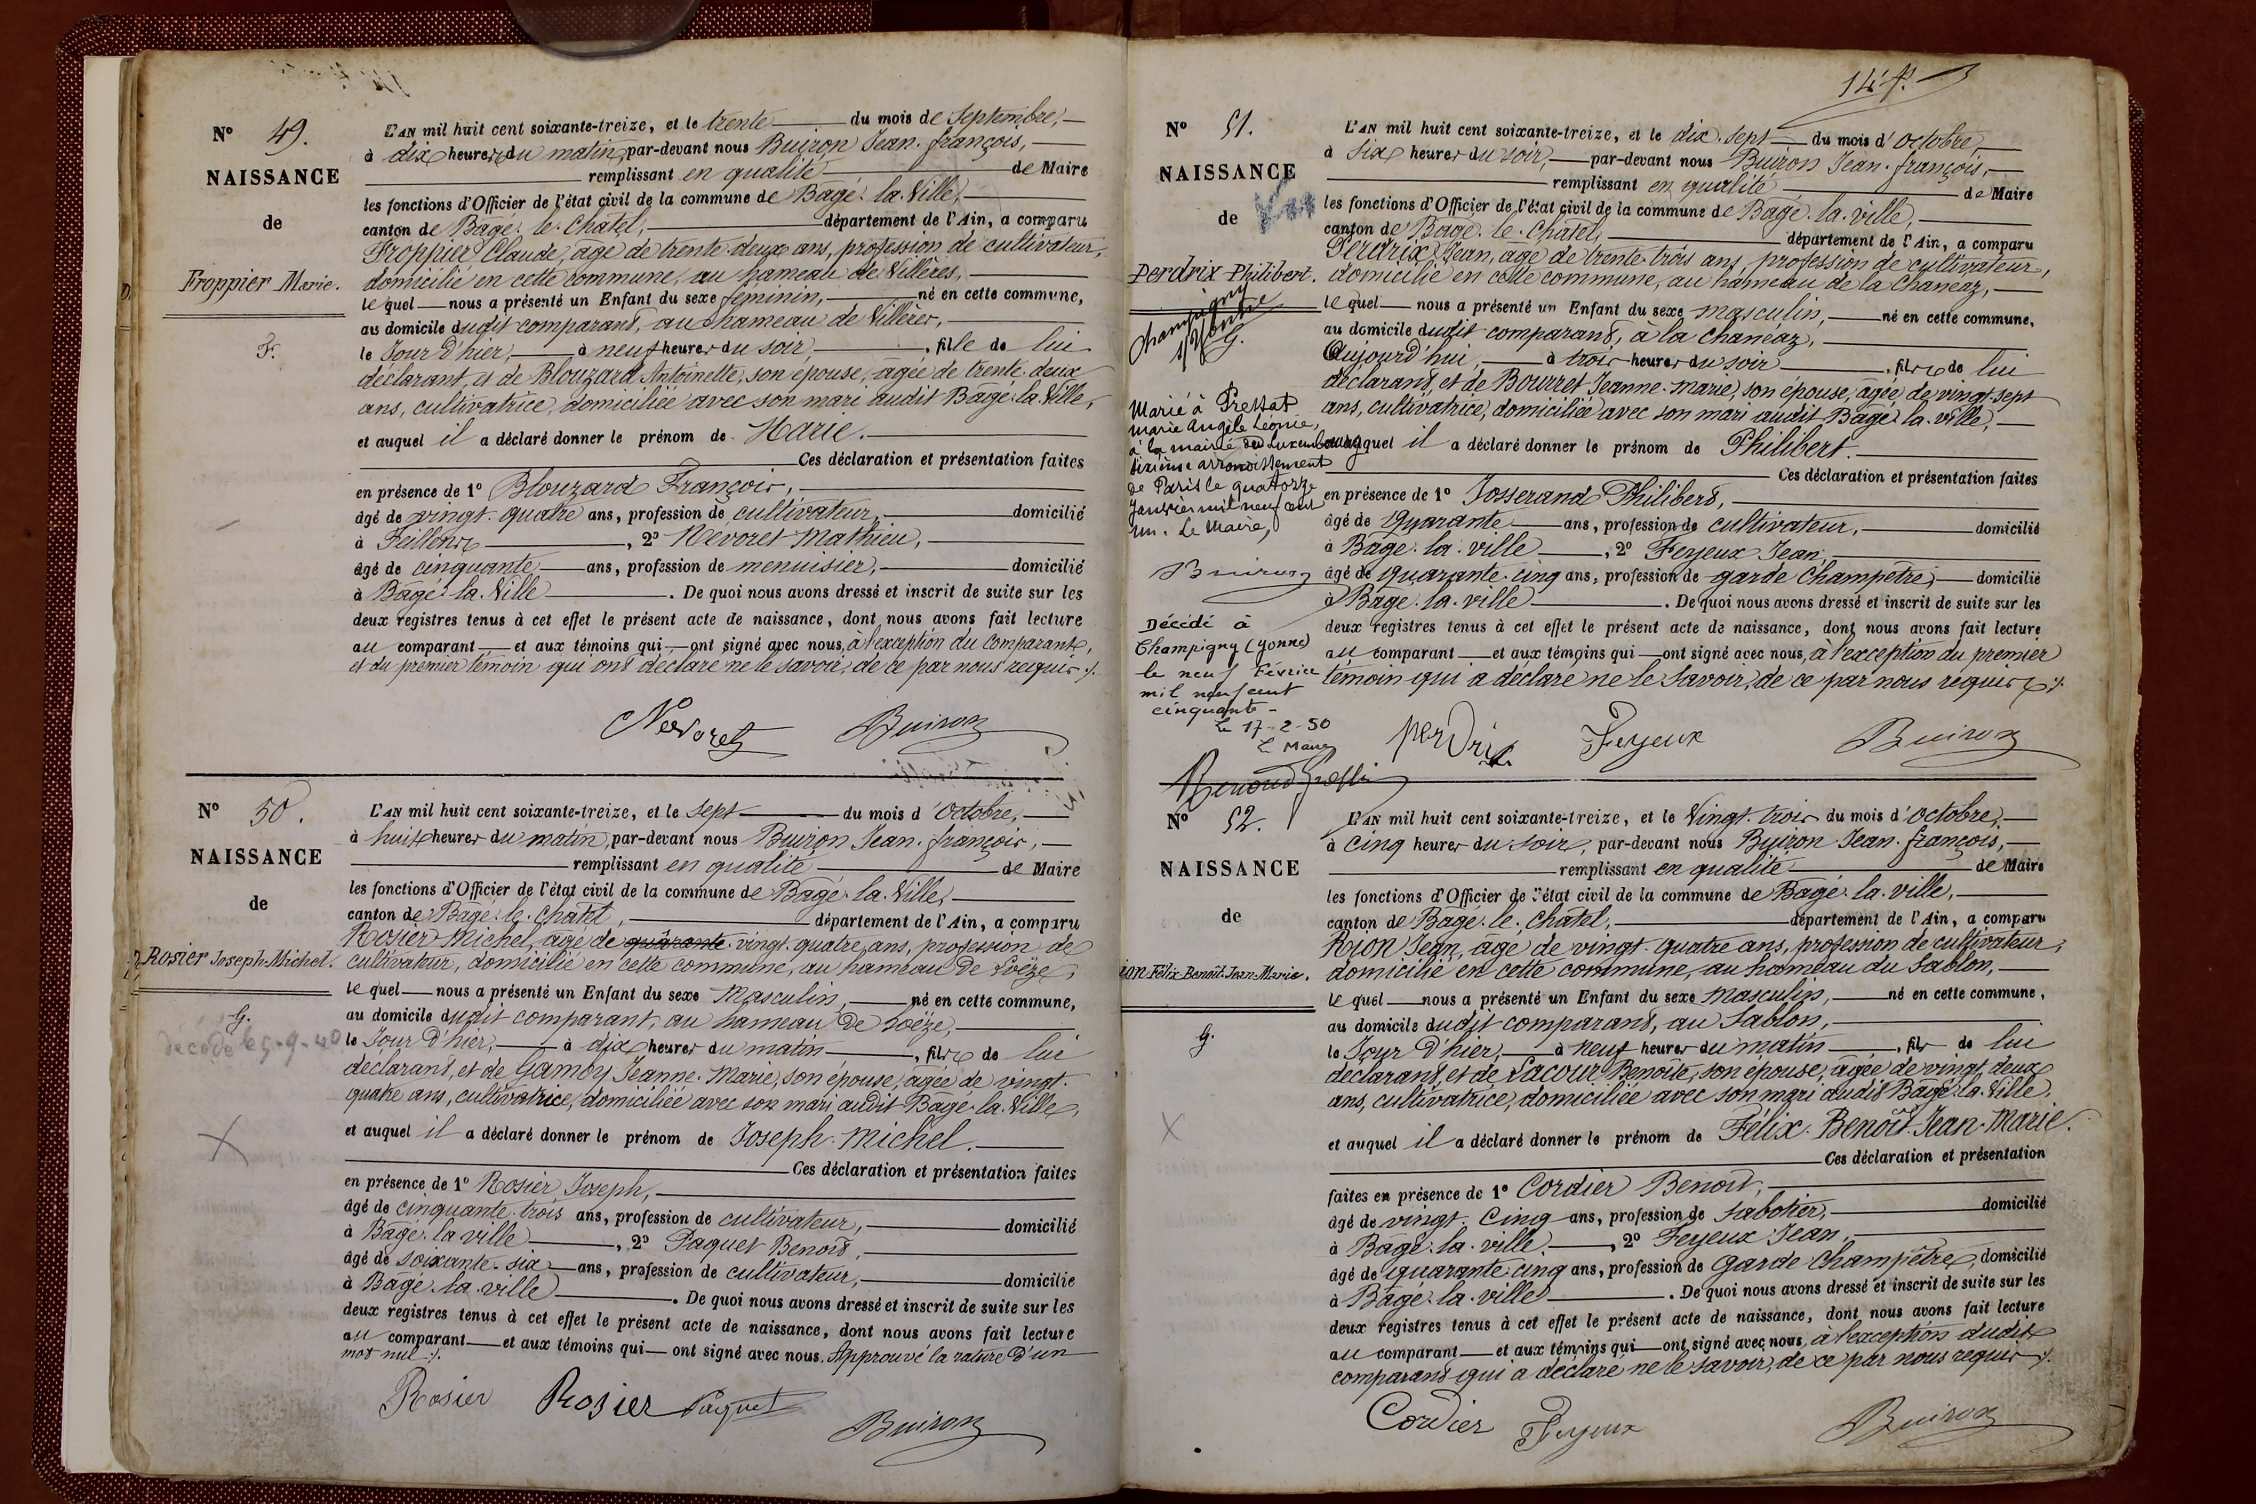 Nº 49.
NAISSANCE
de
Froppier Marie.
F.
L'AN mil huit cent soixante-treize, et le trente du mois de Septembre,
à dix heures du matin, par-devant nous Buiron Jean-françois,
remplissant en qualité de Maire
les fonctions d'Officier de l'état civil de la commune de Bâgé-la-Ville,
canton de Bâgé-le-Chatel, département de l'Ain, a comparu
Froppier Claude, âgé de trente-deux ans, profession de cultivateur,
domicilié en cette commune, au hameau de Villères,
le quel nous a présenté un Enfant du sexe féminin, né en cette commune,
au domicile dudit comparant, au hameau de Villères,
le Jour d'hier, à neuf heures du soir, fille de lui
déclarant, et de Blouzard Antoinette, son épouse, âgée de trente-deux
ans, cultivatrice, domiciliée avec son mari audit Bâgé-la-Ville,
et auquel il a déclaré donner le prénom de Marie.
Ces déclaration et présentation faites
en présence de 1º Blouzard François,
âgé de vingt-quatre ans, profession de cultivateur, domicilié
à Feillens, 2º Nevoret Mathieu,
âgé de cinquante ans, profession de menuisier, domicilié
à Bâgé-la-Ville. De quoi nous avons dressé et inscrit de suite sur les
deux registres tenus à cet effet le présent acte de naissance, dont nous avons fait lecture
au comparant et aux témoins qui ont signé avec nous, à l'exception du comparant,
et du premier témoin qui ont déclaré ne le savoir, de ce par nous requis ./.
Nevoret Buiron
Nº 50.
NAISSANCE
de
Rosier Joseph-Michel.
G.
décédé le 5-9-40
L'AN mil huit cent soixante-treize, et le sept du mois d'Octobre,
à huit heures du matin, par-devant nous Buiron Jean-françois,
remplissant en qualité de Maire
les fonctions d'Officier de l'état civil de la commune de Bâgé-la-Ville,
canton de Bâgé-le-Chatel, département de l'Ain, a comparu
Rosier Michel, âgé de quarante vingt-quatre ans, profession de
cultivateur, domicilié en cette commune, au hameau de Loëze,
le quel nous a présenté un Enfant du sexe Masculin, né en cette commune,
au domicile dudit comparant, au hameau de Loëze,
le Jour d'hier, à dix heures du matin, fils de lui
déclarant, et de Gamby Jeanne-Marie, son épouse, âgée de vingt-
quatre ans, cultivatrice, domiciliée avec son mari audit Bâgé-la-Ville,
et auquel il a déclaré donner le prénom de Joseph-Michel.
Ces déclaration et présentation faites
en présence de 1º Rosier Joseph,
âgé de cinquante-trois ans, profession de cultivateur, domicilié
à Bâgé-la-ville, 2º Paquet Benoît,
âgé de soixante-six ans, profession de cultivateur, domicilié
à Bâgé-la-ville. De quoi nous avons dressé et inscrit de suite sur les
deux registres tenus à cet effet le présent acte de naissance, dont nous avons fait lecture
au comparant et aux témoins qui ont signé avec nous. Approuvé la rature d'un
mot nul ./.
Rosier Rosier Paquet
Buiron
Nº 51.
NAISSANCE
de
Perdrix Philibert.
Champigny
G.
Marié à Pressat
Marie Angèle Léonie,
à la mairie du Luxembourg
sixième arrondissement
de Paris le quatorze
Janvier mil neuf cent
un. Le Maire,
Buiron
Décédé à
Champigny (Yonne)
le neuf Février
mil neuf cent
cinquante -
Le 17-2-50
Le Maire
L'AN mil huit cent soixante-treize, et le dix-sept du mois d'Octobre,
à Six heures du soir, par-devant nous Buiron Jean-françois,
remplissant en qualité de Maire
les fonctions d'Officier de l'état civil de la commune de Bâgé-la-ville,
canton de Bâgé-le-Chatel, département de l'Ain, a comparu
Perdrix Jean, âgé de trente-trois ans, profession de cultivateur,
domicilié en cette commune, au hameau de la Chanéaz,
le quel nous a présenté un Enfant du sexe masculin, né en cette commune,
au domicile dudit comparant, à la Chanéaz,
Aujourd'hui, à trois heures du soir, fils de lui
déclarant, et de Bourret Jeanne-Marie, son épouse, âgée de vingt-sept
ans, cultivatrice, domiciliée avec son mari audit Bâgé-la-ville,
et auquel il a déclaré donner le prénom de Philibert.
Ces déclaration et présentation faites
en présence de 1º Josserand Philibert,
âgé de Quarante ans, profession de cultivateur, domicilié
à Bâgé-la-ville, 2º Feyeux Jean,
âgé de quarante-cinq ans, profession de garde Champêtre, domicilié
à Bâgé-la-ville. De quoi nous avons dressé et inscrit de suite sur les
deux registres tenus à cet effet le présent acte de naissance, dont nous avons fait lecture
au comparant et aux témoins qui ont signé avec nous, à l'exception du premier
témoin qui a déclaré ne le Savoir, de ce par nous requis ./.
perdrix Feyeux Buiron
Nº 52.
NAISSANCE
de
ion Félix-Benoît-Jean-Marie.
G.
L'AN mil huit cent soixante-treize, et le Vingt-trois du mois d'Octobre,
à Cinq heures du soir, par-devant nous Buiron Jean-françois,
remplissant en qualité de Maire
les fonctions d'Officier de l'état civil de la commune de Bâgé-la-ville,
canton de Bâgé-le-Chatel, département de l'Ain, a comparu
Rion Jean, âgé de vingt-quatre ans, profession de cultivateur,
domicilié en cette commune, au hameau du Sablon,
le quel nous a présenté un Enfant du sexe Masculin, né en cette commune,
au domicile dudit comparant, au Sablon,
le Jour d'hier, à neuf heures du matin, fils de lui
déclarant, et de Lacour Benoîte, son épouse, âgée de vingt-deux
ans, cultivatrice, domiciliée avec son mari audit Bâgé-la-Ville.
et auquel il a déclaré donner le prénom de Félix-Benoît-Jean-Marie.
Ces déclaration et présentation
faites en présence de 1º Cordier Benoît,
âgé de vingt-Cinq ans, profession de Sabotier, domicilié
à Bâgé-la-ville, 2º Feyeux Jean,
âgé de quarante-cinq ans, profession de Garde-Champêtre, domicilié
à Bâgé-la-ville. De quoi nous avons dressé et inscrit de suite sur les
deux registres tenus à cet effet le présent acte de naissance, dont nous avons fait lecture
au comparant et aux témoins qui ont signé avec nous, à l'exception dudit
comparant qui a déclaré ne le savoir, de ce par nous requis ./.
Cordier Feyeux Buiron